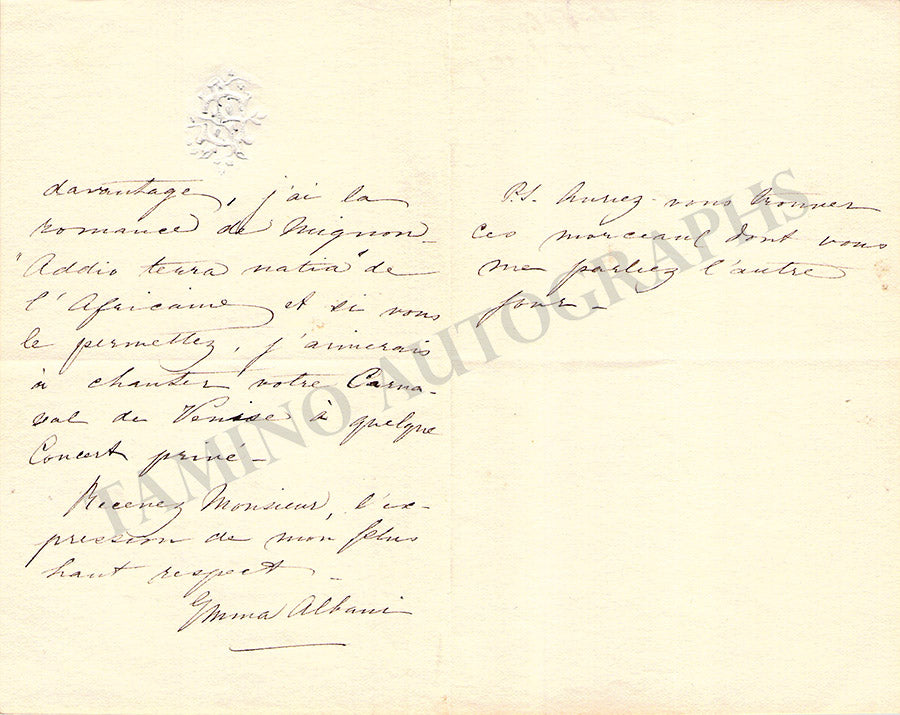 davantage, j'ai la
romance de Mignon
"Addio terra natia" de
l'Africaine et si vous
le permettez, j'aimerais
à chanter votre Carna-
val de Venise à quelque
Concert privé -
Recevez Monsieur, l'ex-
pression de mon plus
haut respect -
Emma Albani
P.S. Auriez-vous trouver
ces morceaux dont vous
me parliez l'autre
jour -
TAMINO AUTOGRAPHS